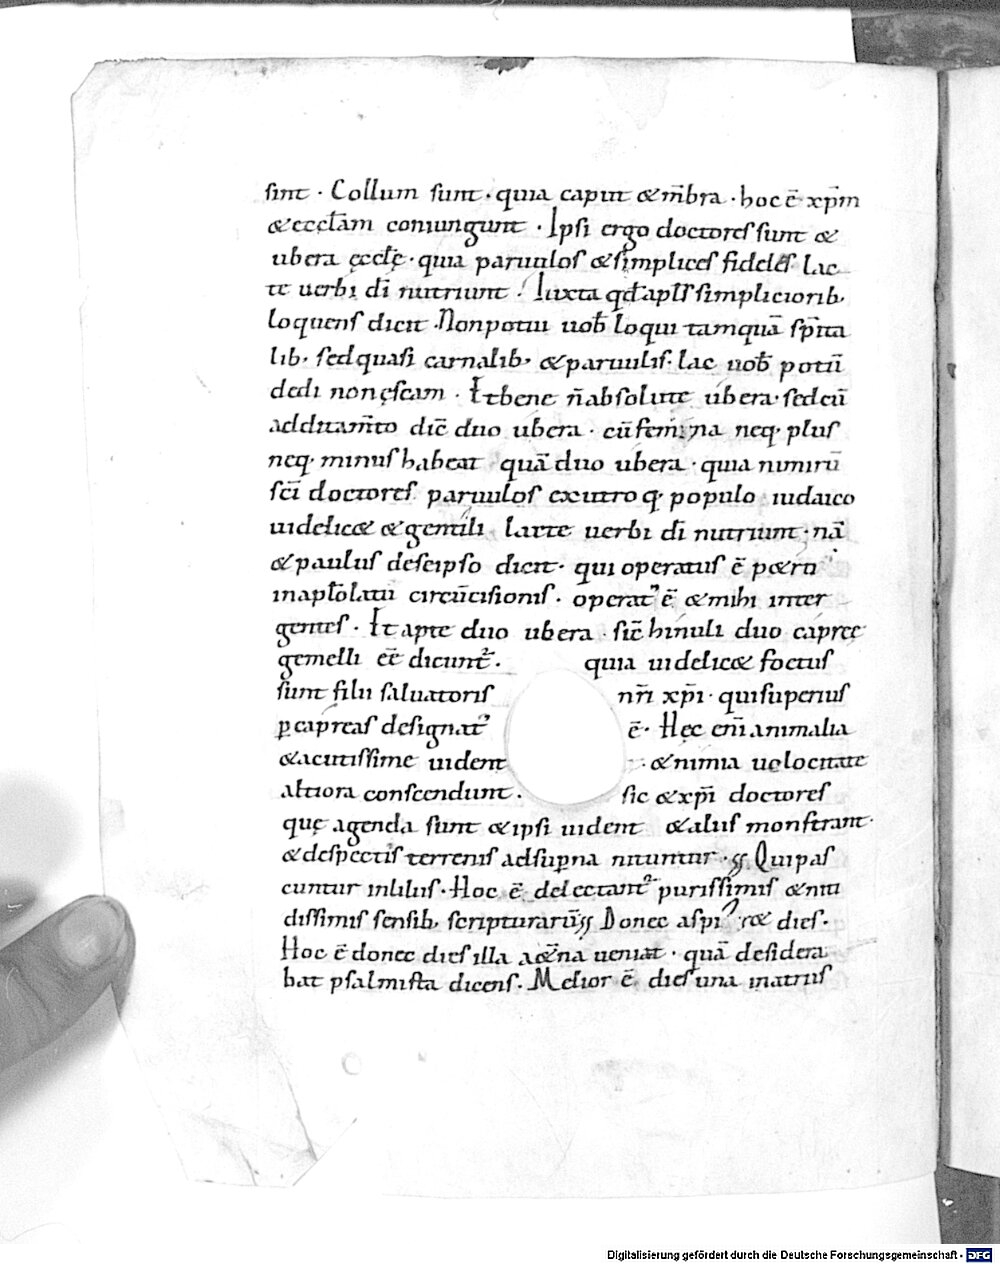 sint · Collum sunt · quia caput & m̄bra · hoc ē xp̄m
& eccl̄am coniungunt · Ipsi ergo doctores sunt &
ubera ęccl̄ę · quia paruulos & simplices fideles lac
te uerbi dī nutriunt · Iuxta qđ apl̄s simpliciorib;
loquens dicit · Non potui uob̄ loqui tamquā sp̄ita
lib; sed quasi carnalib; & paruulis · lac uob̄ potū
dedi non ęscam · Et bene n̄ absolute ubera · sed cū
additam̄to dic̄ duo ubera · cū femina neq; plus
neq; minus habeat quā duo ubera · quia nimirū
sc̄i doctores paruulos ex utroq; populo iudaico
uidelic& & gentili lacte uerbi dī nutriunt · nā
& paulus de seipso dicit · qui operatus ē p&ro
in apl̄olatū circūcisionis · operat' ē & mihi inter
gentes · Et apte duo ubera · sic̄ hinuli duo capreę
gemelli ēē dicunt̄ · quia uidelic& foetus
sunt filii saluatoris nr̄i xp̄i · qui superius
p capreas designat' ē · Hęc eni animalia
& acutissime uident · & nimia uelocitate
altiora conscendunt · sic & xp̄i doctores
quę agenda sunt & ipsi uident & aliis monstrant ·
& despectis terrenis ad sup̄na nituntur · Qui pas
cuntur in liliis · Hoc ē delectant̄ purissimis & niti
dissimis sensib; scripturarū Donec aspir& dies ·
Hoc ē donec dies illa a&̄na ueniat · quā desidera
bat psalmista dicens · Melior ē dies una in atriis
Digitalisierung gefördert durch die Deutsche Forschungsgemeinschaft - DFG